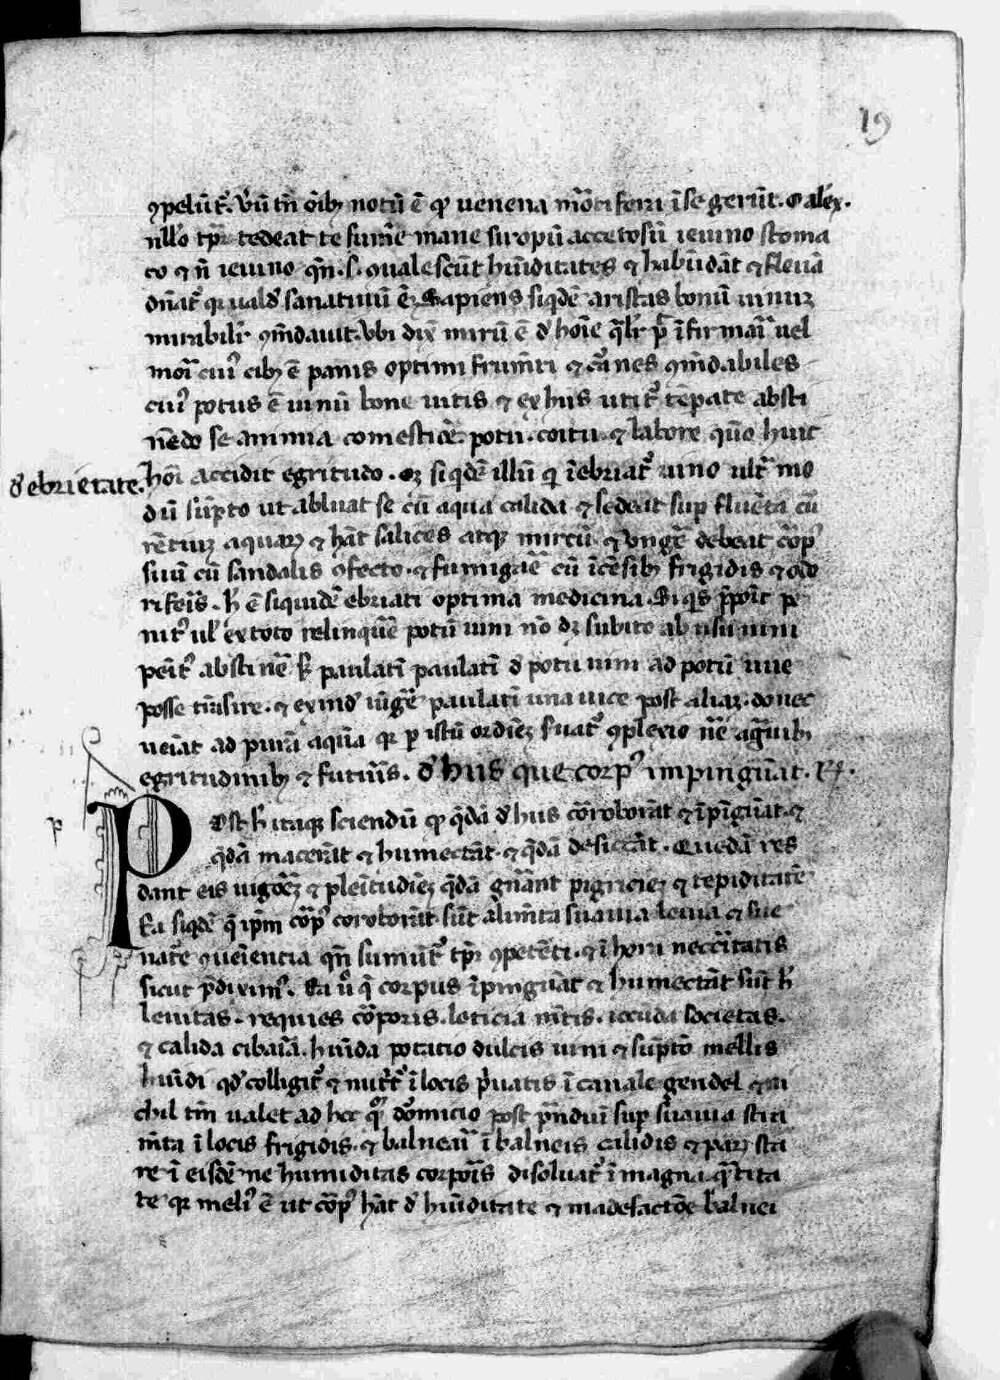 19
ꝯpelūt᷑. Uū tn̄ oīb; notū ē ꝙ uenena mōtiferu ī se gerūt. O alex.
ullo tꝑe tedeat te sum̄e mane siropū accetosū ieiuno stoma
co ⁊ n̄ ieiuno qn̄ .s. ꝯualescūt hūiditates ⁊ habūdāt ⁊ fleuā
dn̄at᷑ qꝛ uald' sanatiuū ē. Sapiens siqdē aristas bonū uinuꝫ
mirabilit᷑ ꝯm̄dauit. Ubi dix̄ mirū ē d' hoīe q̄lit᷑ p̄t īfirmari uel
mori cui᷒ cib; ē panis optimi frum̄ti ⁊ carnes ꝯm̄dabiles
cui᷒ potus ē uinū bone uitis ⁊ ex hiis utit᷑ tēpate absti
nēdo se a nimia comestiōe. potu. coitu. ⁊ labore quō huic
d' ebrietate.
hoī accidit egritudo. Oꝫ siqdē illū qi īebriat᷑ uino ultᵃ mo
dū sūpto ut abluat se cū aqua calida ⁊ sedeat sup fluēta cu
rētiuꝫ aquaꝝ ⁊ hāt salices atqꝫ mirtū. ⁊ ungē debeat corp᷒
suū cū sandalis ꝯfecto. ⁊ fumigāe cū īcēsib; frigidis ⁊ odo
riferis. h̄ ē siquidē ebriati optima medicina. Si qs p̄poīt pe
nit᷒ ul' ex toto relinquē potū uini nō dꝫ subito ab usu uini
pēit᷒ abstinē s; paulatī paulatī d' potu uini ad potū uue
posse trāsire. ⁊ exind' iūgē paulatī una uice post aliaꝫ. donec
ueīat ad purā aquā qꝛ ꝑ istū ordinē ſuat᷑ ꝯplexio nr̄e a g̃uib;
egritudinib; ⁊ futuris. d' hiis que corp᷒ impinguāt. Rꝭ.
Post h̄ itaqꝫ sciendū ꝙ q̄dā d' hiis corroborāt ⁊ īpīguāt. ⁊
q̄dā macerāt ⁊ humectāt. ⁊ q̄dā desiccāt. Quedā res
dant eis uigorē ⁊ plenitudinē q̄dā gn̄ant pigriciē ⁊ tepiditatē
Ea siqdē q̄ ip̄m corp᷒ coroborāt sūt alim̄ta suauia leuia ⁊ sue
nature ꝯueniencia qn̄ sumūt᷑ tꝑe ꝯpetēti. ⁊ ī hora necc̄itatis
sicut p̄dixim᷒. Ea u͛ q̄ corpus īpinguāt ⁊ humectāt sūt h̄
leuitas. requies corporis. leticia mētis. iocūda societas.
⁊ calida cibaria. hūida potatio dulcis uini ⁊ sūpto mellis
hūidi qd' colligit᷑ ⁊ nutrit᷑ ī locis p̄uatis ī canale gendel ⁊ ni
chil tm̄ ualet ad hec qᵐ dormicio post prandiū sup suauia strā
mēta ī locis frigidis. ⁊ balneari ī balneis calidis ⁊ parū sta
re ī eisdē ne humiditas corporis disoluat᷑ ī magna qᵃtita
te qꝛ meli᷒ ē ut corp᷒ hāt d' hūiditate ⁊ madefactiōe balnei